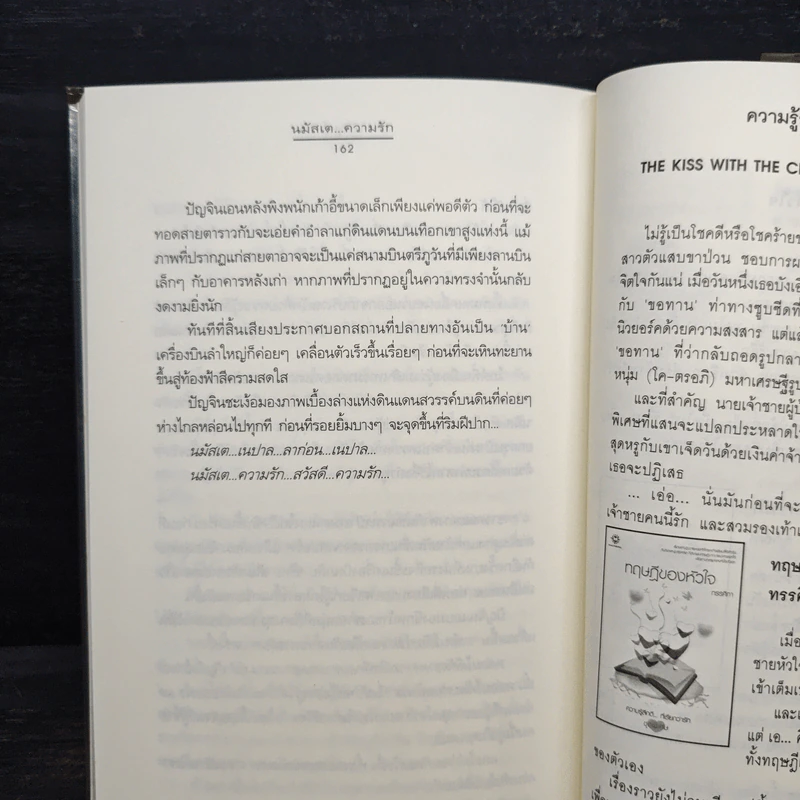 นมัสเต...ความรัก
162
ปัญจินเอนหลังพิงพนักเก้าอี้ขนาดเล็กเพียงแค่พอดีตัว ก่อนที่จะ
ทอดสายตาราวกับจะเอ่ยคำอำลาแก่ดินแดนบนเทือกเขาสูงแห่งนี้ แม้
ภาพที่ปรากฏแก่สายตาอาจจะเป็นแค่สนามบินตรีภูวันที่มีเพียงลานบิน
เล็กๆ กับอาคารหลังเก่า หากภาพที่ปรากฏอยู่ในความทรงจำนั้นกลับ
งดงามยิ่งนัก
ทันทีที่สิ้นเสียงประกาศบอกสถานที่ปลายทางอันเป็น 'บ้าน'
เครื่องบินลำใหญ่ก็ค่อยๆ เคลื่อนตัวเร็วขึ้นเรื่อยๆ ก่อนที่จะเหินทะยาน
ขึ้นสู่ท้องฟ้าสีครามสดใส
ปัญจินชะเง้อมองภาพเบื้องล่างแห่งดินแดนสวรรค์บนดินที่ค่อยๆ
ห่างไกลหล่อนไปทุกที ก่อนที่รอยยิ้มบางๆ จะจุดขึ้นที่ริมฝีปาก...
นมัสเต...เนปาล...ลาก่อน...เนปาล...
นมัสเต...ความรัก...สวัสดี...ความรัก...
ความรู้
THE KISS WITH THE
ไม่รู้เป็นโชคดีหรือโชคร้าย
สาวตัวแสบขาป่วน ชอบการ
จิตใจกันแน่ เมื่อวันหนึ่งเธอบังเอิ
กับ 'ขอทาน' ท่าทางซูบซีดที่
นิวยอร์คด้วยความสงสาร แต่
'ขอทาน' ที่ว่ากลับถอดรูปกลา
หนุ่ม (ใค-ตรอภิ) มหาเศรษฐีรูป
และที่สำคัญ นายเจ้าชายผู้
พิเศษที่แสนจะแปลกประหลาด
สุดหรูกับเขาเจ็ดวันด้วยเงินค่าจ้า
เธอจะปฏิเสธ
... เอ่อ... นั่นมันก่อนที่จะ
เจ้าชายคนนี้รัก และสวมรองเท้า
ทฤษฎีของหัวใจ
ทรรศิกา
ทฤษ
ทรรศิ
เมื่อ
ชายหัวใจ
เข้าเต็ม
และ
แต่ เอ...
ทั้งทฤษฎี
ของตัวเอง
เรื่องราวยังไม่